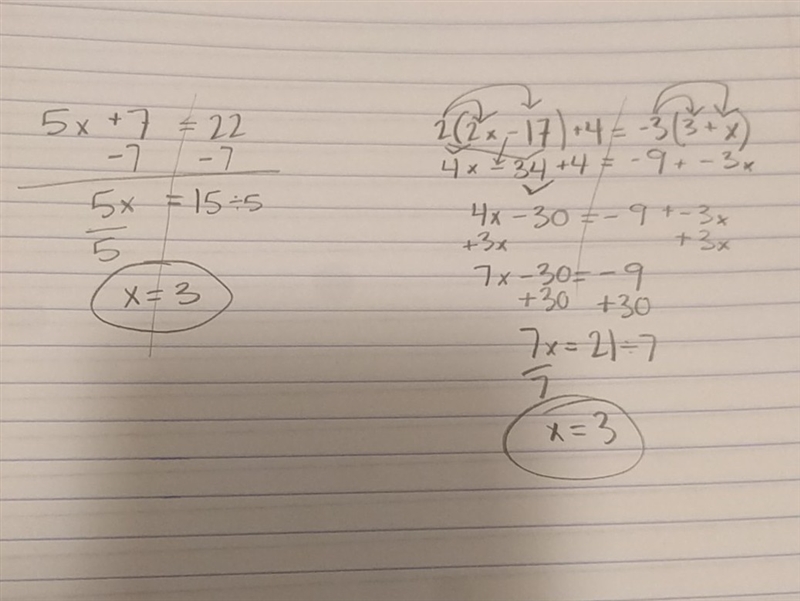 5x + 7 = 22
-7 -7
5x = 15 ÷ 5
5
x = 3
2(2x - 17) + 4 = -3(3 + x)
4x - 34 + 4 = -9 + -3x
4x - 30 = -9 + -3x
+3x +3x
7x - 30 = -9
+30 +30
7x = 21 ÷ 7
7
x = 3